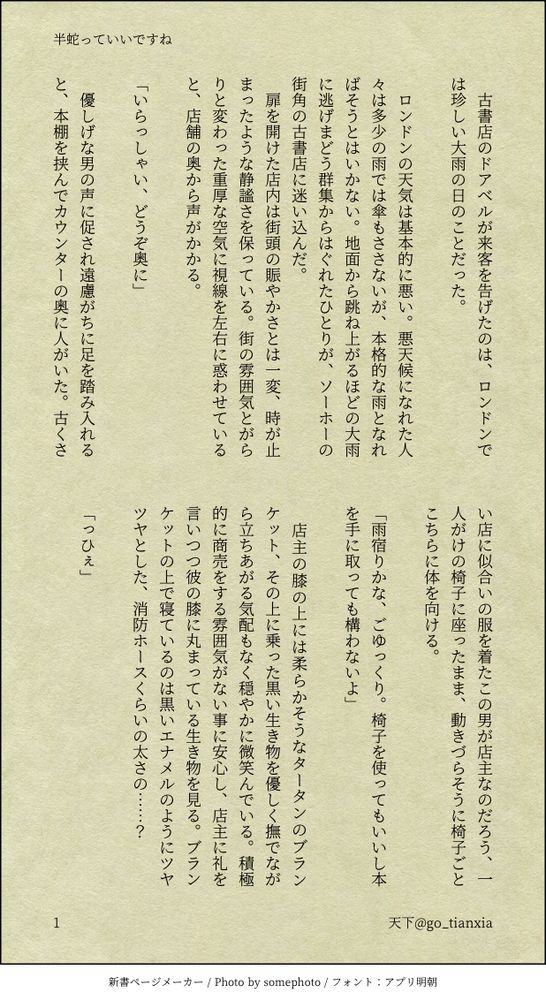 半蛇っていいですね
　古書店のドアベルが来客を告げたのは、ロンドンで
は珍しい大雨の日のことだった。
　ロンドンの天気は基本的に悪い。悪天候になれた人
々は多少の雨では傘もささないが、本格的な雨となれ
ばそうとはいかない。地面から跳ね上がるほどの大雨
に逃げまどう群集からはぐれたひとりが、ソーホーの
街角の古書店に迷い込んだ。
　扉を開けた店内は街頭の賑やかさとは一変、時が止
まったような静謐さを保っている。街の雰囲気とがら
りと変わった重厚な空気に視線を左右に惑わせている
と、店舗の奥から声がかかる。
「いらっしゃい、どうぞ奥に」
　優しげな男の声に促され遠慮がちに足を踏み入れる
と、本棚を挟んでカウンターの奥に人がいた。古くさ
い店に似合いの服を着たこの男が店主なのだろう、一
人がけの椅子に座ったまま、動きづらそうに椅子ごと
こちらに体を向ける。
「雨宿りかな、ごゆっくり。椅子を使ってもいいし本
を手に取っても構わないよ」
　店主の膝の上には柔らかそうなタータンのブラン
ケット、その上に乗った黒い生き物を優しく撫でなが
ら立ちあがる気配もなく穏やかに微笑んでいる。積極
的に商売をする雰囲気がない事に安心し、店主に礼を
言いつつ彼の膝に丸まっている生き物を見る。ブラン
ケットの上で寝ているのは黒いエナメルのようにツヤ
ツヤとした、消防ホースくらいの太さの……？
「っひぇ」
天下@go_tianxia
1
新書ページメーカー / Photo by somephoto / フォント：アプリ明朝